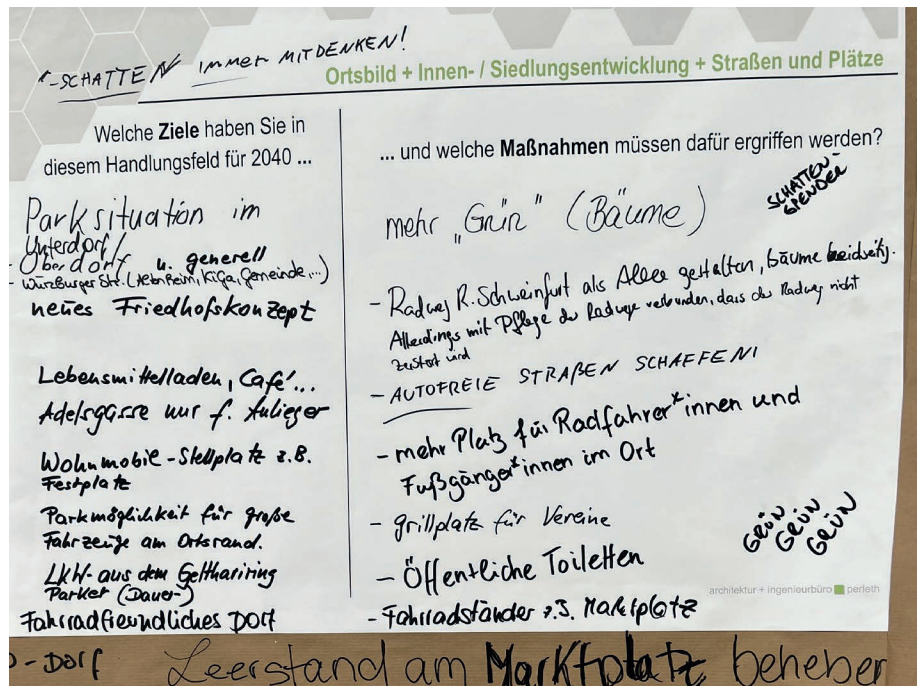 -SCHATTEN IMMER MITDENKEN!
Ortsbild + Innen- / Siedlungsentwicklung + Straßen und Plätze
Welche Ziele haben Sie in
diesem Handlungsfeld für 2040 ...
Parksituation im
Unterdorf/
- Oberdorf u. generell
- Würzburger Str. (Altenheim, KiGa, Gemeinde...)
neues Friedhofskonzept
Lebensmittelladen, Café...
Adelsgasse nur f. Anlieger
Wohnmobil-Stellplatz z.B.
Festplatz
Parkmöglichkeit für große
Fahrzeuge am Ortsrand.
LKW- aus dem
Parker (Dauer-)
Fahrradfreundliches Dorf
... und welche Maßnahmen müssen dafür ergriffen werden?
SCHATTEN-
SPENDER
mehr „Grün" (Bäume)
- Radweg R. Schweinfurt als Allee gestalten, Bäume beidseits.
Allerdings mit Pflege der Radwege verbunden, dass der Radweg nicht
zerstört wird
- AUTOFREIE STRAßEN SCHAFFEN!
- mehr Platz für Radfahrer*innen und
Fußgänger*innen im Ort
- Grillplatz für Vereine
- Öffentliche Toiletten
- Fahrradständer z.B. Marktplatz
GRÜN
GRÜN
GRÜN
architektur + ingenieurbüro perleth
- DORF Leerstand am Marktplatz beheben